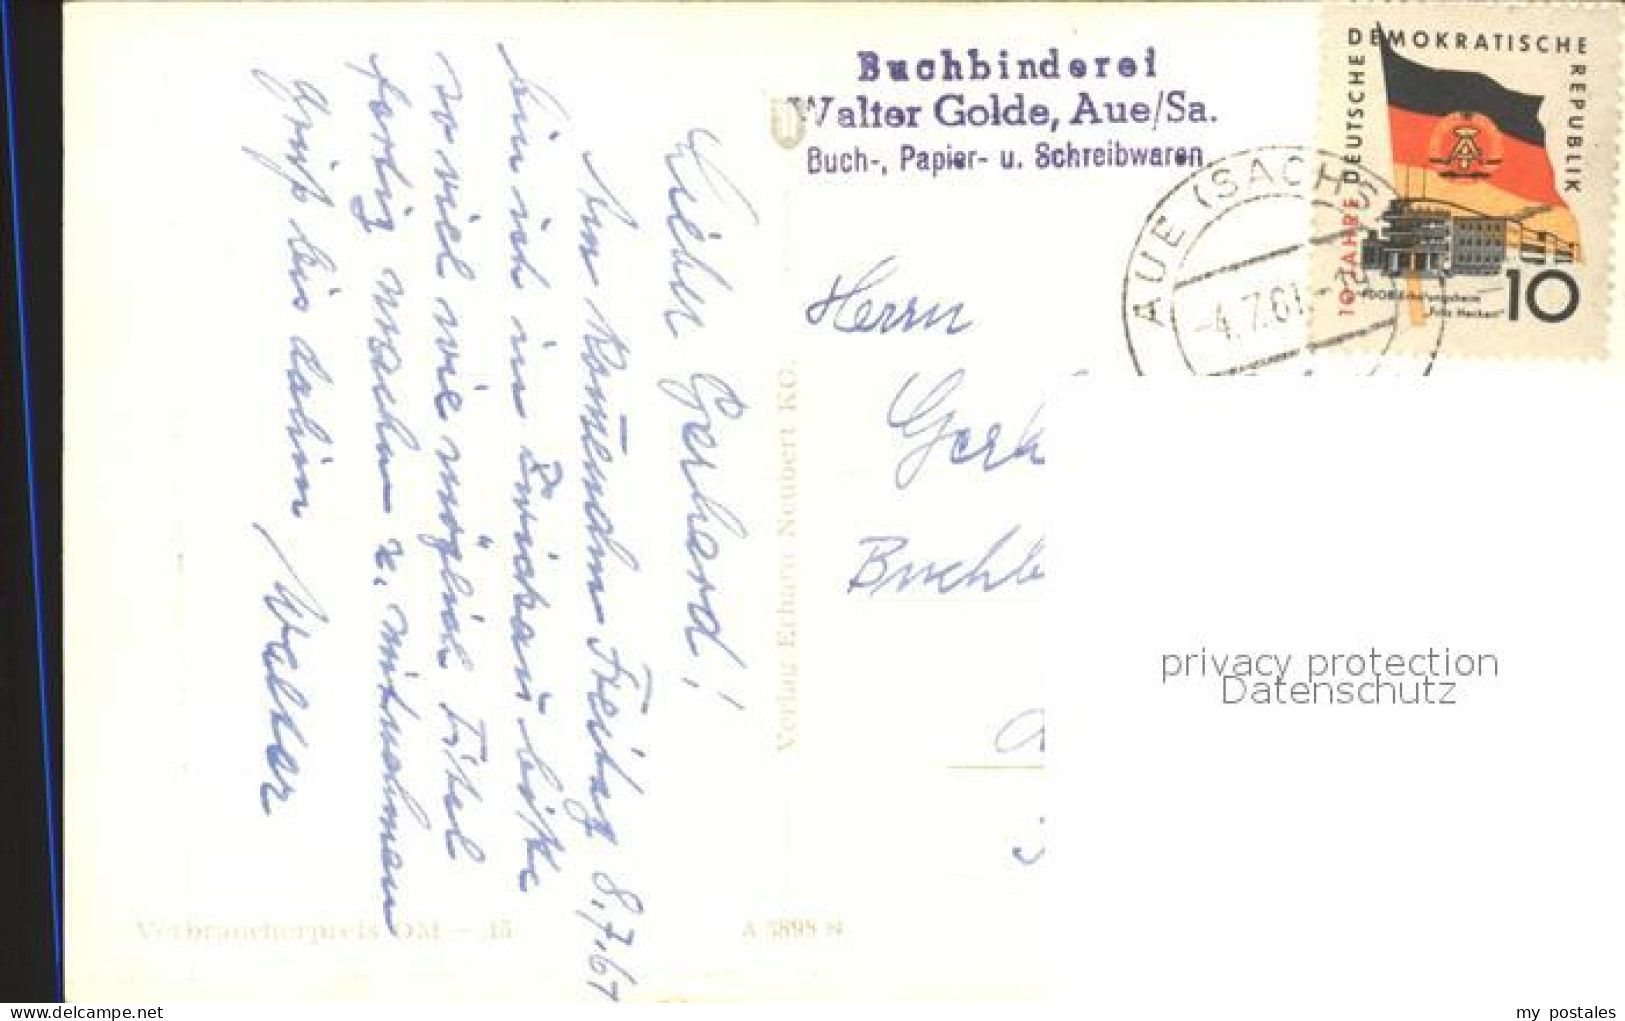 Buchbinderei
Walter Golde, Aue/Sa.
Buch-, Papier- u. Schreibwaren
DEUTSCHE DEMOKRATISCHE REPUBLIK
10 JAHRE
FDGB Erholungsheim
"Fritz Heckert"
10
AUE (SACHS)
-4.7.61.-
Lieber Gerhard!
Am kommenden Freitag 8.7.61
bin ich in Zwickau bitte
so viel wie möglich Titel
fertig machen z. mitnehmen
Gruß bis dahin Walter
Herrn
Gerh
Buchb
Verlag Erhard Neubert KG.
Verbraucherpreis DM -,15
A 5898 N
privacy protection
Datenschutz
www.delcampe.net
my_postales